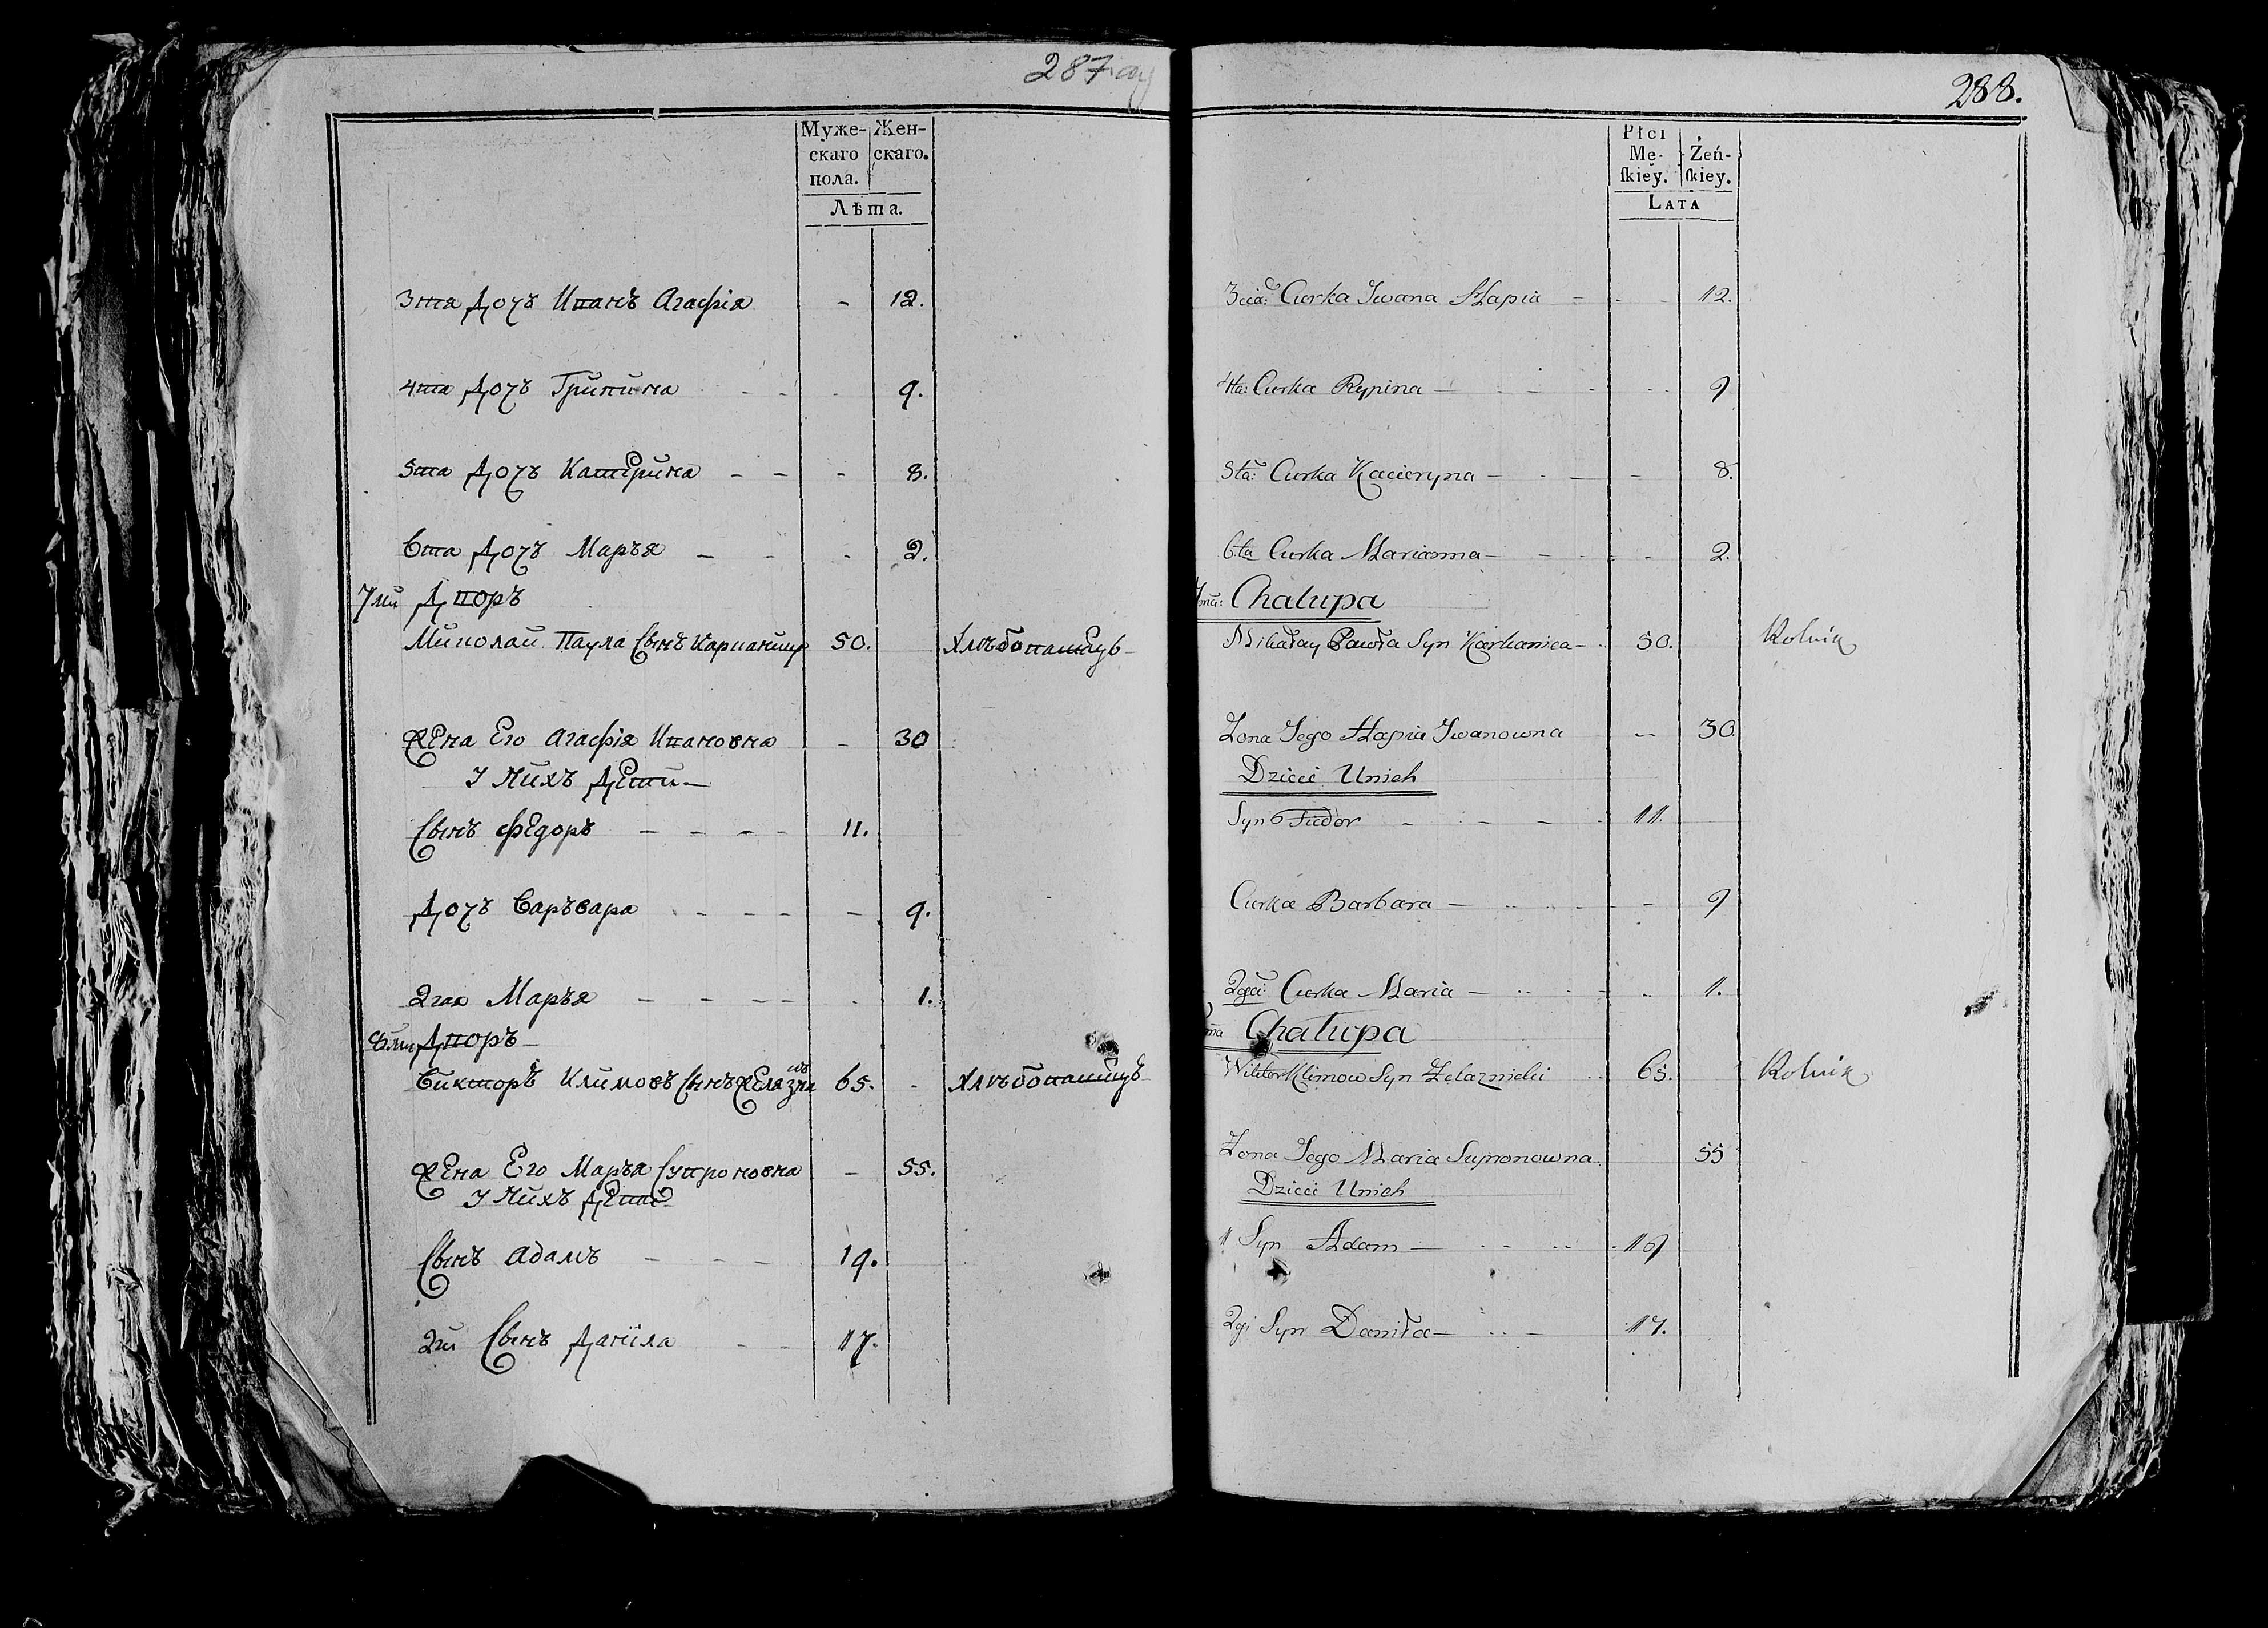 287
Муже-
скаго
пола.
Жен-
скаго.
Лѣта.
3тя Дочъ Иванъ Агафія - 12.
4та Дочъ Грипина - - - 9.
5та Дочъ Катерина - - - 8.
6та Дочъ Маръя - - - 2.
7мй Дворъ
Миколай Паула Сынъ 50. Хлѣбопашецъ
Жена Его Агафія Ивановна - 30
У Нихъ Дети
Сынъ Федоръ - - - - 11.
Дочъ Варъвара - - - - 9.
2гая Маръя - - - - 1.
8мй Дворъ
Викторъ Климовъ Сынъ 65. - Хлѣбопашецъ
Жена Его Маръя Супроновна - 55.
У Нихъ Дети
Сынъ Адамъ - - - 19.
2й Сынъ Данiила - - 17.
288.
Płci
Mę-
ſkiey.
Żeń-
ſkiey.
LATA
3cia: Curka Jwana Hapia - - - 12.
4ta: Curka Rypina - - - 9
5ta: Curka Kacieryna - - - 8.
6ta Curka Marianna - - - 2.
7ma: Chałupa
Mikałay Pawła Syn Karkanica - 50. Rolnik
Żona Jego Hapia Jwanowna - 30.
Dzieci Unich
Syn Fiedor - - - - 11.
Curka Barbara - - - 9
2ga: Curka Maria - - - 1.
ma Chałupa
Wiktor Klimow Syn Żelaznicki 65. Rolnik
Żona Jego Maria Supronowna 55
Dzieci Unich
1 Syn Adam - - - 19
2gi Syn Daniła - - - 17.